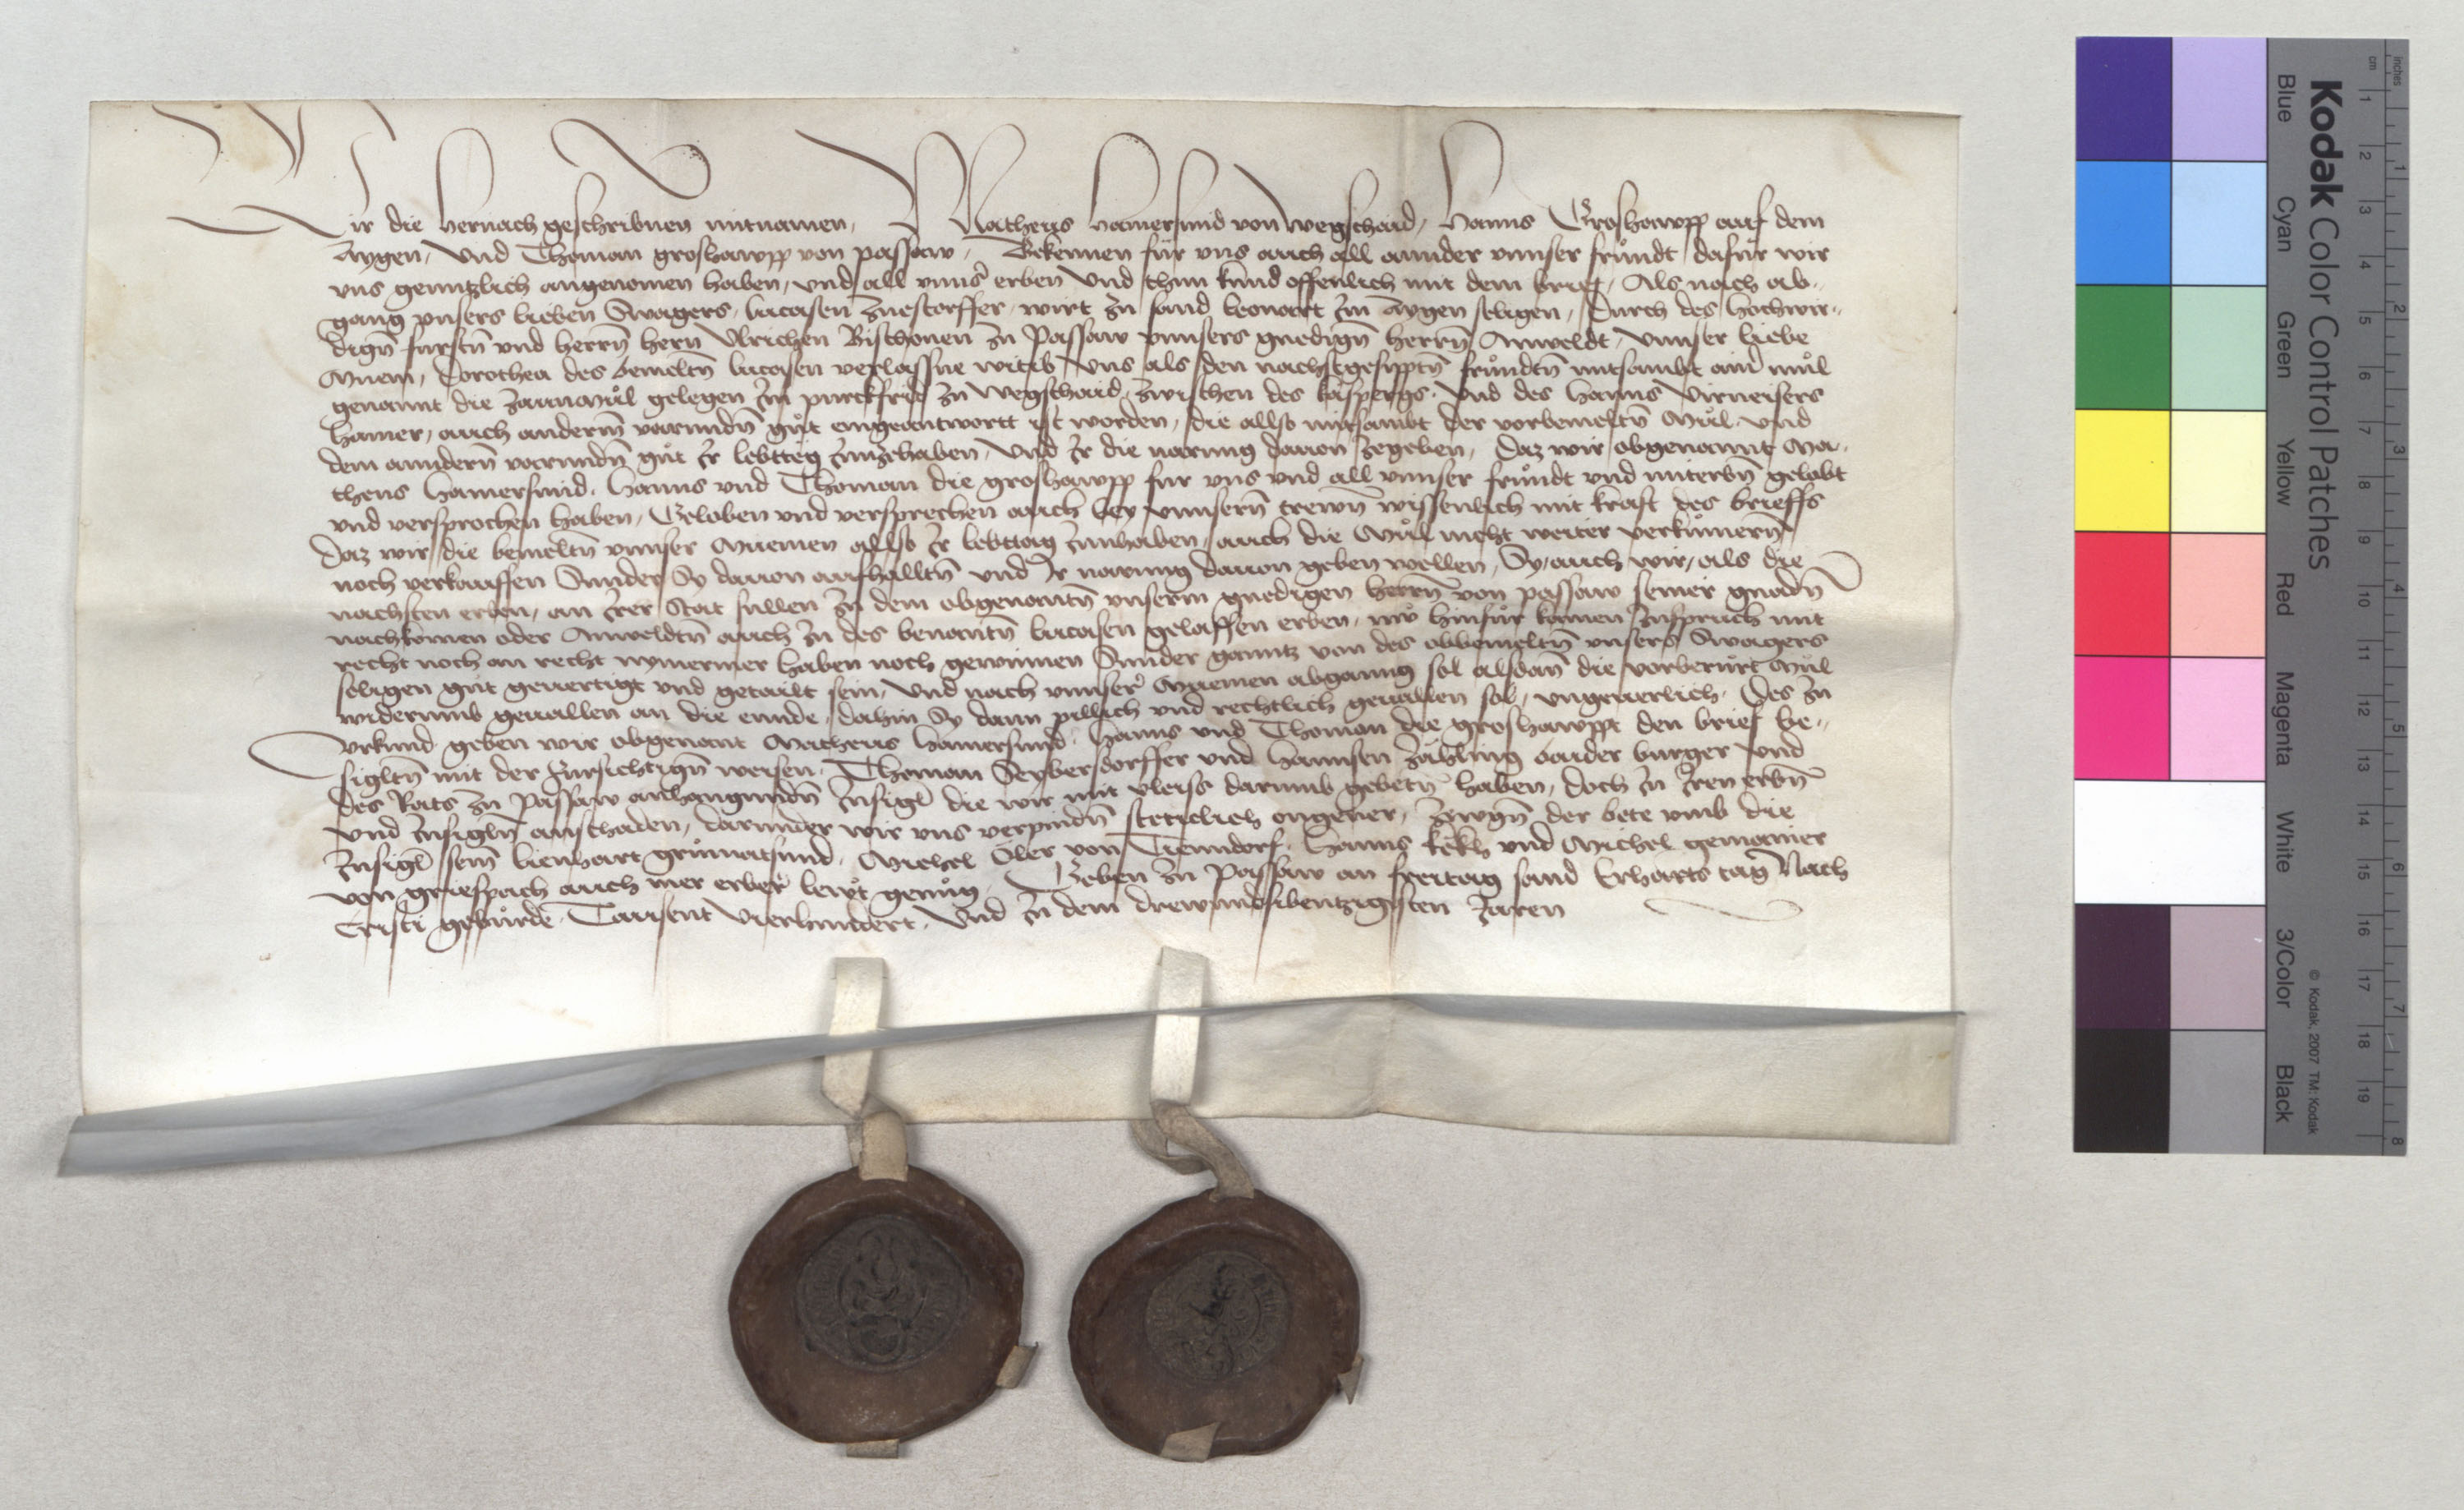 Wir die hernach geschribnen mitnamen, Matheus hamersmid von Wegschaid, Hanns Groshawpp auf dem
Aygen, Und Thoman groshawpp von passaw, Bekennen fur vns auch all annder vnnser frundt dafur wir
vns genntzlich angenomen haben, vnd all vnnser erben Vnd thun kund offenlich mit dem brief, Als nach ab-
gang vnsers lieben Swagers, lucasen wirt zu sand leonart im Aygen seligen, durch des hochwir-
digen fursten vnd herrn hern Vlrichen Bischouen zu Passaw vnnsers gnedigen herrn Anweldt, vnnser liebe
Muem, Dorothea des bemeltn lucasen verlassne witib, Vns als den nachstgesypptn frundtn mitsambt aind mul
genannt die gelegen im purckfrid zu Wegschaid, zwischen des Vnd des Hanns
hamer, auch anderm varundn gut eingeantwortt ist worden, die allso mitsambt der vorbemeltn Mul, vnd
dem anndern varundn gut ir lebtteg Innzehaben, Vnd ir die narung dauon zegeben, daz wir obgenannt Ma-
theus Hamersmid, Hanns vnd Thoman die groshawpp fur vns vnd all vnnser frundt vnd miterbn gelobt
vnd versprochen haben, Geloben vnd versprechen auch bey vnnsern trewn wissenlich mit kraft des brieffs
Daz wir die bemeltn vnnser Muemen allso ir lebttag Innhaben, auch die Mul nicht weiter verkumern
noch verkauffen Sunder Sy dauon aufhalltn vnd Ir narung dauon geben wellen, Sy, auch wir, als die
nachsten erben, an irer stat sullen zu dem obgenantn vnserm gnedigen herrn von passaw seiner gnadn
nachkomen oder Anweldtn auch zu des benantn lucasen gelassen erben, nw hinfur kainen zuspruch mit
recht noch an recht nymermer haben noch gewinnen Sunder ganntz von des obbemeltn vnsers Swagers
seligen gut geuertigt vnd getailt sein, Vnd nach vnnser Muemen abganng sol alsdan die vorberurt Mul
widerumb geuallen an die ennde, dahin Sy dann pillich vnd rechtlich geuallen sol, vngeuerlich. Des zu
vrkund geben wir obgenant Matheus hamersmid, Hanns vnd Thoman die groshawppt den brief be-
sigltn mit der Fursichtign weisen, Thoman Seyberstorffer vnd hannsen baider burger vnd
des Rats zu Passaw anhangundn Insigl die wir mit vleiss darumb gebetn haben, doch in iren erbn
vnd Insigln anschaden, darunder wir vns verpindn steticlich ongeuer, Zewgn der bete vmb die
Insigl sein lienhart Michel Oler von Tienndorf, Hanns vnd Michel
von griespach auch mer erber lewt genug. Geben zu Passaw an freitag sand Erharts tag Nach
Cristi geburde Tausent Vierhundert, Vnd in dem drewundsibentzigisten Jaren
Kodak Color Control Patches
Blue Cyan Green Yellow Red Magenta White 3/Color Black
© Kodak, 2007 TM: Kodak
inches 1 2 3 4 5 6 7 8
cm 1 2 3 4 5 6 7 8 9 10 11 12 13 14 15 16 17 18 19